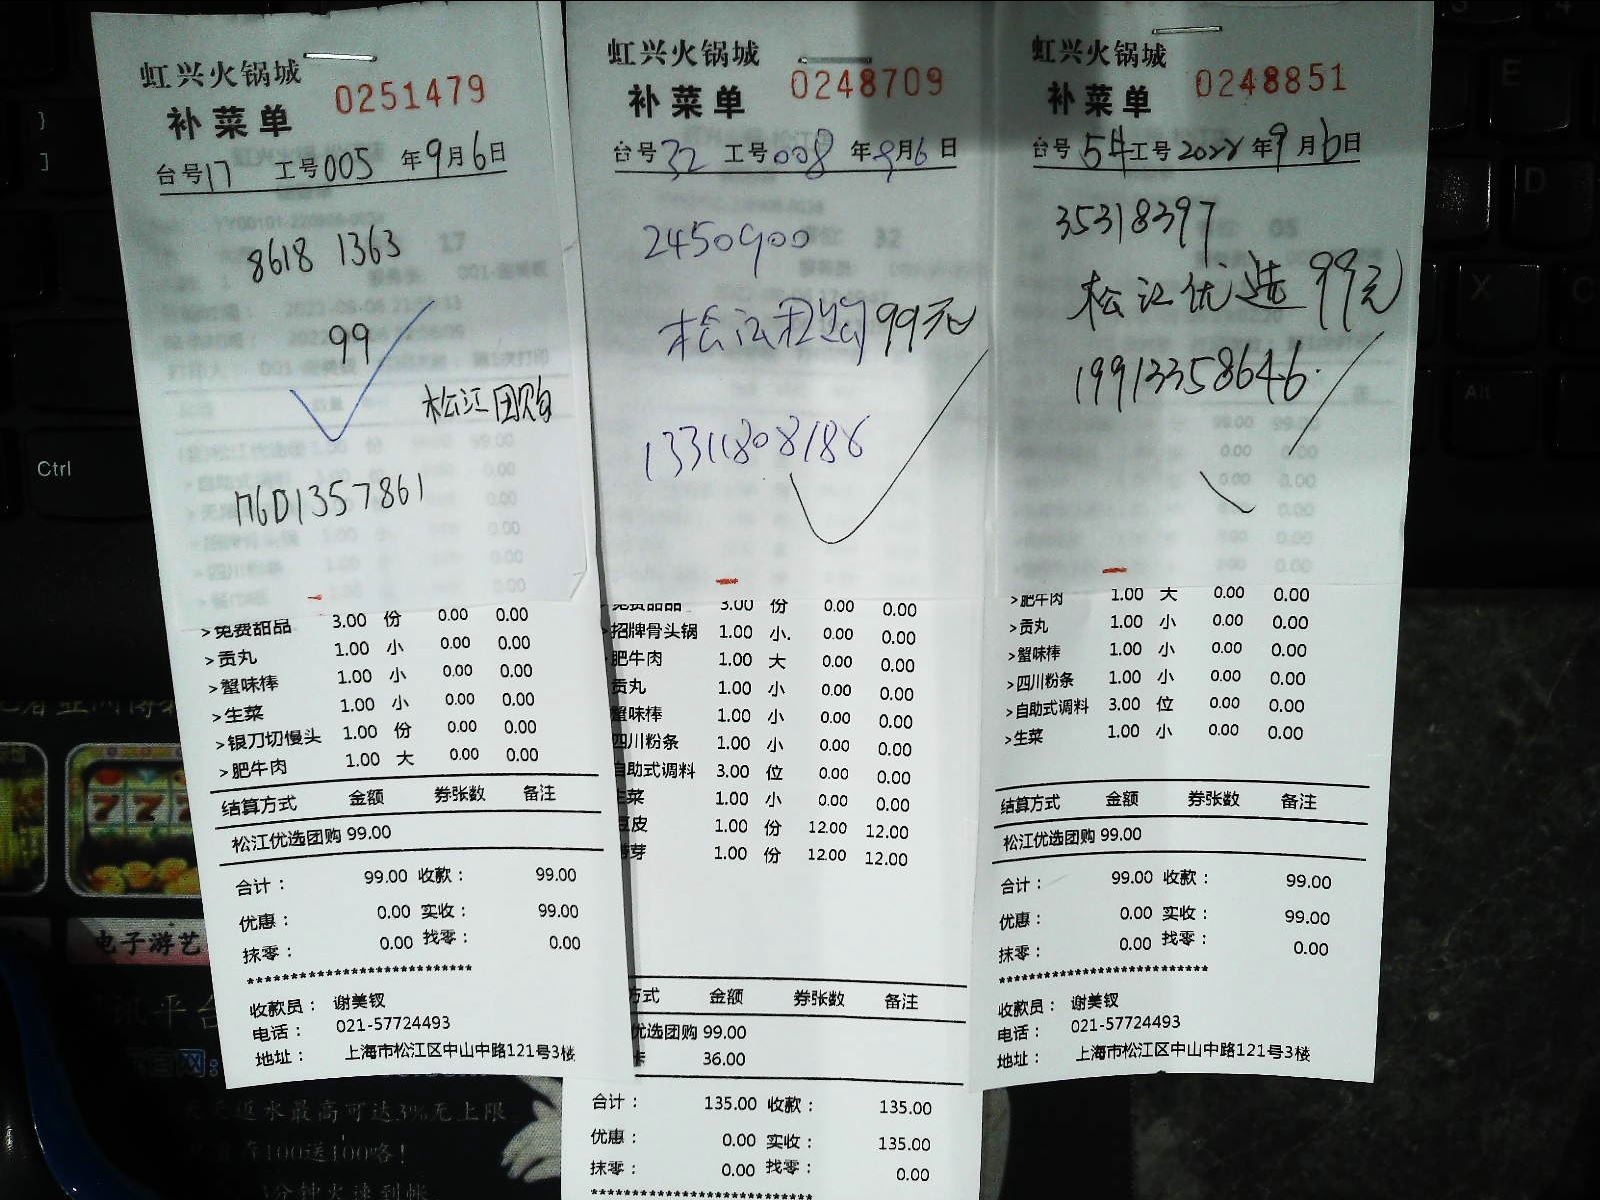 虹兴火锅城
补菜单 0251479
台号17 工号005 年9月6日
8618 1363
99
松江团购
M6D1357861
>免费甜品 3.00 份 0.00 0.00
>贡丸 1.00 小 0.00 0.00
>蟹味棒 1.00 小 0.00 0.00
>生菜 1.00 小 0.00 0.00
>银刀切馒头 1.00 份 0.00 0.00
>肥牛肉 1.00 大 0.00 0.00
结算方式 金额 券张数 备注
松江优选团购 99.00
合计： 99.00 收款： 99.00
优惠： 0.00 实收： 99.00
抹零： 0.00 找零： 0.00
**************************
收款员： 谢美钗
电话： 021-57724493
地址： 上海市松江区中山中路121号3楼
虹兴火锅城
补菜单 0248709
台号32 工号008 年9月6日
2450900
松江团购99元
13311808186
>免费甜品 3.00 份 0.00 0.00
>招牌骨头锅 1.00 小. 0.00 0.00
肥牛肉 1.00 大 0.00 0.00
贡丸 1.00 小 0.00 0.00
蟹味棒 1.00 小 0.00 0.00
四川粉条 1.00 小 0.00 0.00
自助式调料 3.00 位 0.00 0.00
生菜 1.00 小 0.00 0.00
豆皮 1.00 份 12.00 12.00
芽 1.00 份 12.00 12.00
方式 金额 券张数 备注
优选团购 99.00
卡 36.00
合计： 135.00 收款： 135.00
优惠： 0.00 实收： 135.00
抹零： 0.00 找零： 0.00
**************************
虹兴火锅城
补菜单 0248851
台号5牛 工号2022 年9月6日
35318397
松江优选99元
19913358646.
>肥牛肉 1.00 大 0.00 0.00
>贡丸 1.00 小 0.00 0.00
>蟹味棒 1.00 小 0.00 0.00
>四川粉条 1.00 小 0.00 0.00
>自助式调料 3.00 位 0.00 0.00
>生菜 1.00 小 0.00 0.00
结算方式 金额 券张数 备注
松江优选团购 99.00
合计： 99.00 收款： 99.00
优惠： 0.00 实收： 99.00
抹零： 0.00 找零： 0.00
**************************
收款员： 谢美钗
电话： 021-57724493
地址： 上海市松江区中山中路121号3楼
Ctrl
Alt
E
D
X
C
777
电子游艺
讯平台
返水最高可达3%无上限
100送100咯！
分钟火速到帐